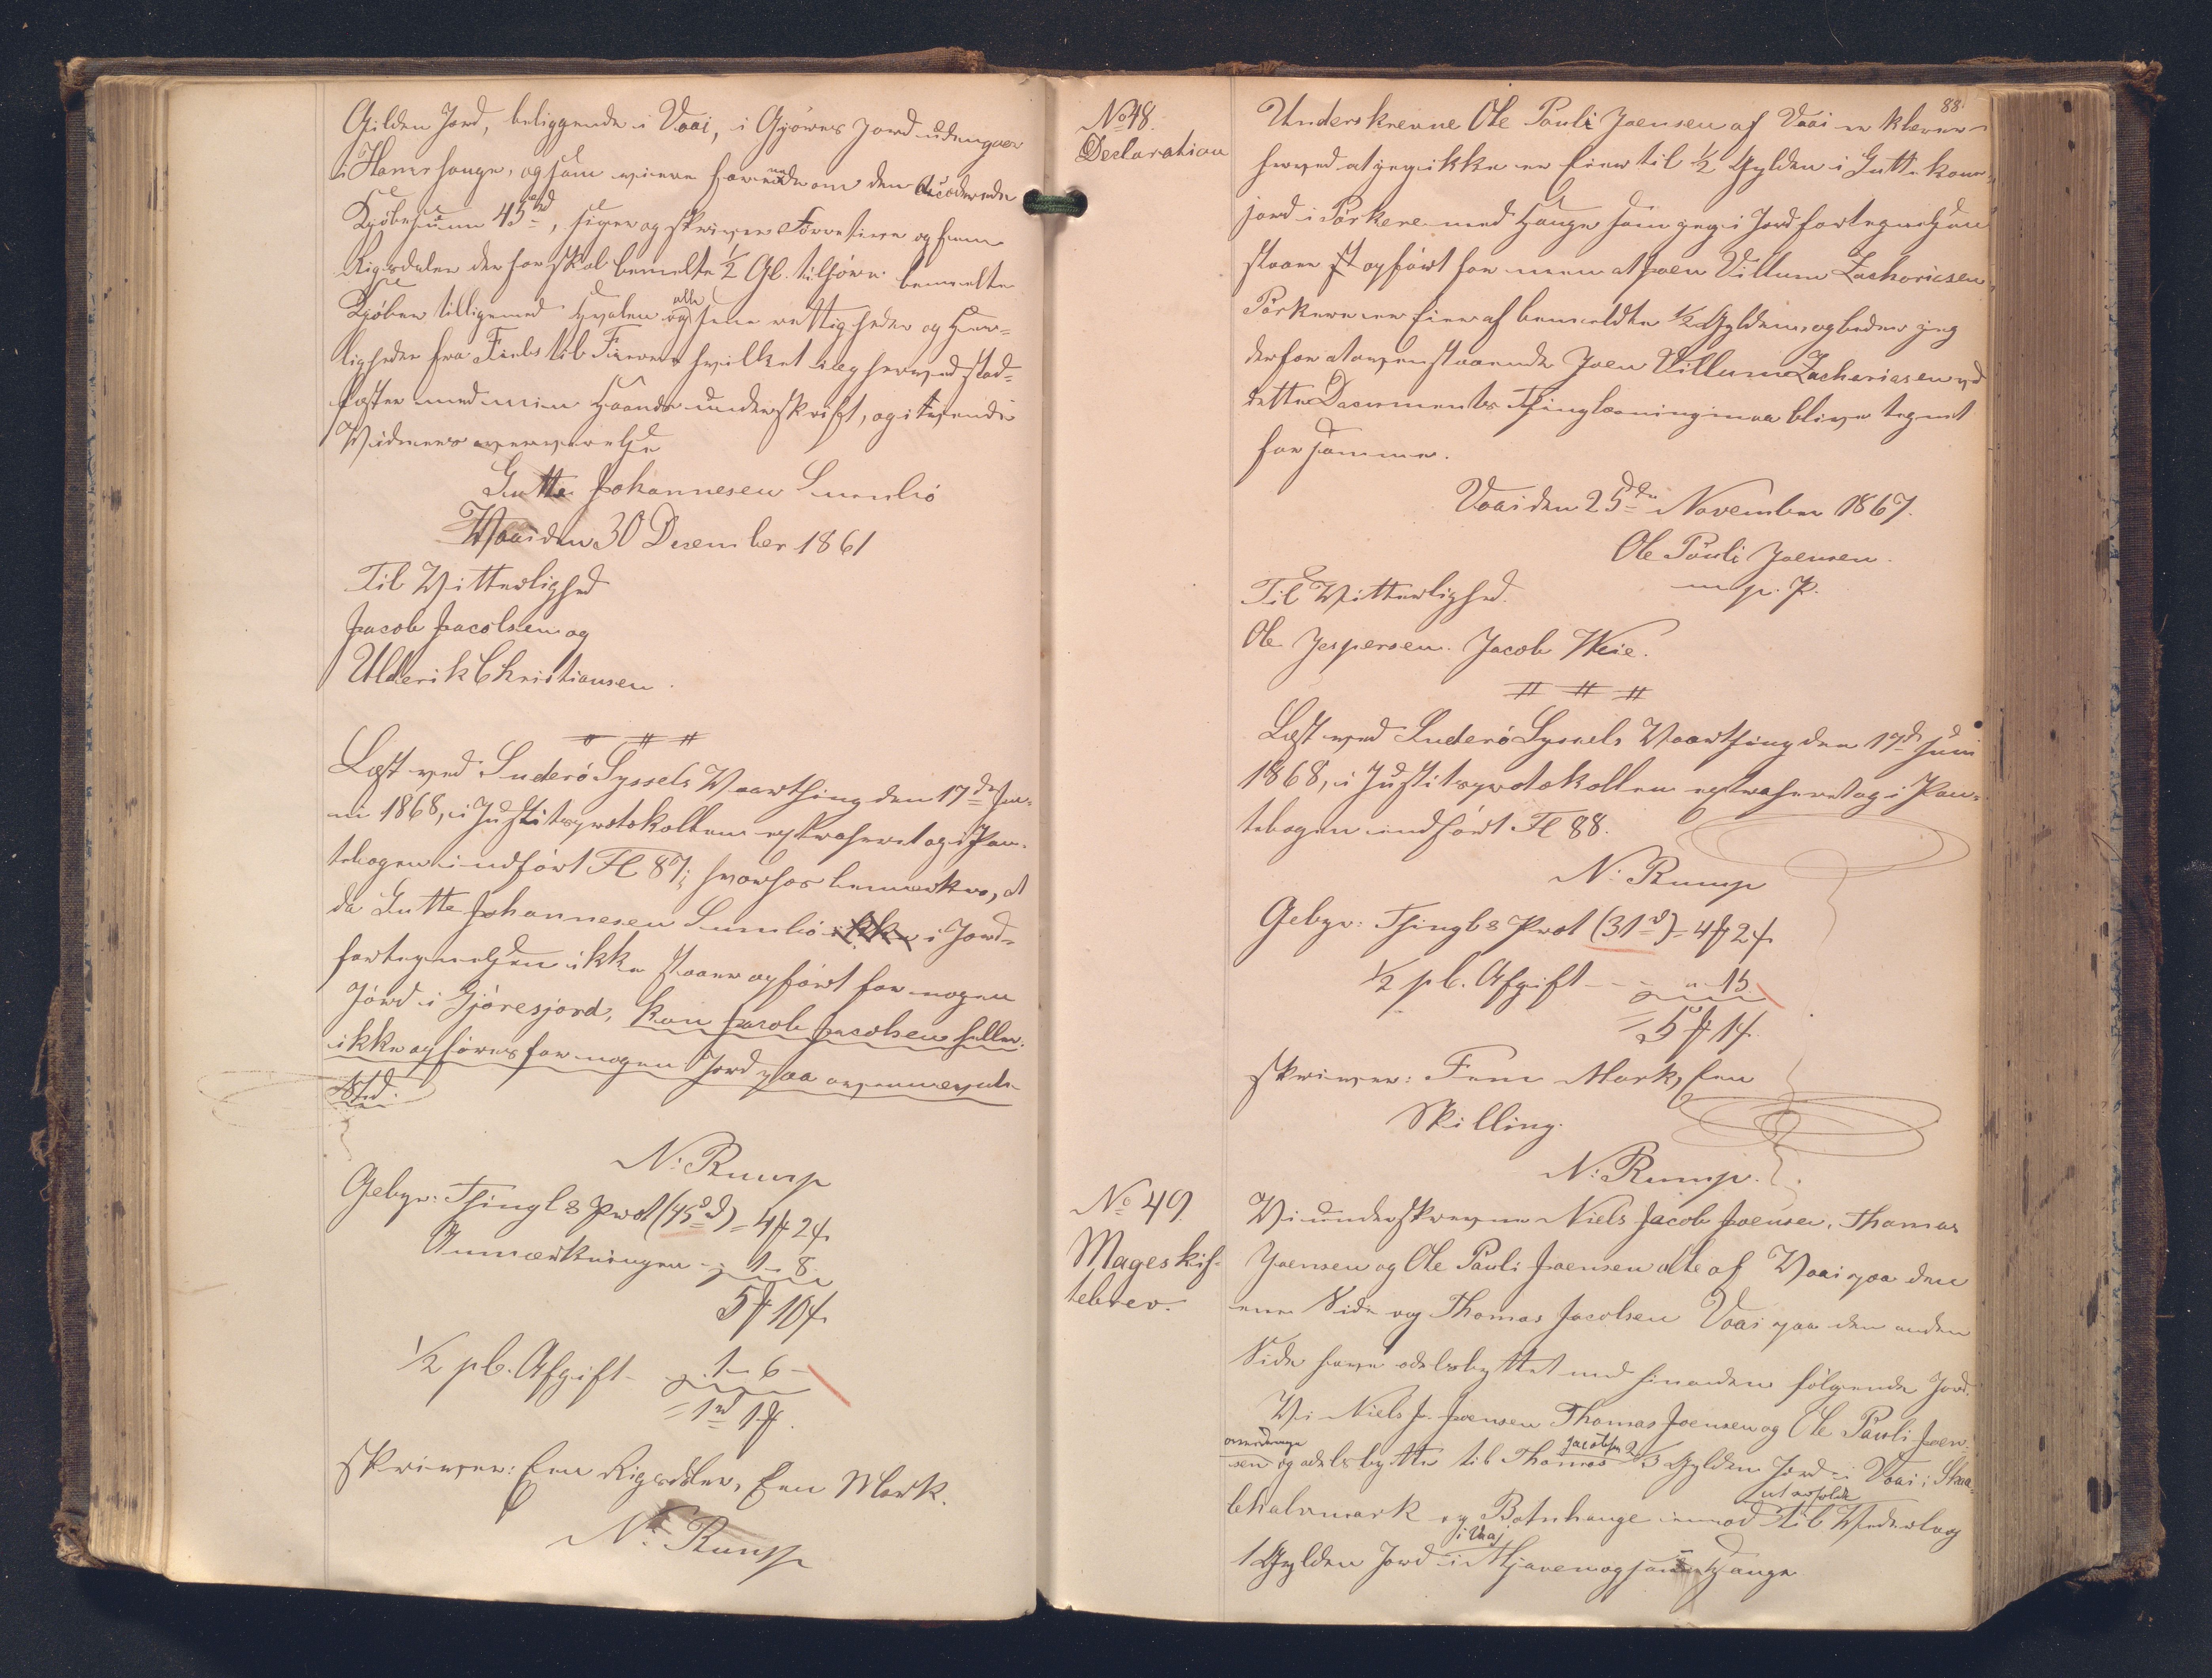 Gilden Jord, beliggende i Vaai, i Gjøres Jord udengaar
i Hamrehauge, og som vinne for ende om den Accorderede
Kjøbesum 45 rd, siger og skriver Førretive og fem
Rigsdaler derfor skal bemelte ½ Gl. tilhøre bemelte
Kjøber tilligemed Hvalen og alle sine rettigheder og Her=
ligheder fra Fields til Fiære hvilket ieg herved stad=
fæster med min Haands underskrift, og i tvende
Widners overværelse
Gutte Johannesen Sumbø
Waai den 30 Desember 1861
Til Witterlighed
Jacob Jacobsen og
Ulderik Christiansen.
Læst ved Suderö Syssels Vaarthing den 17de Ju=
ni 1868, i Justitsprotokollen extraheret og i Pan=
tebogen indført Fl 87; hvorhos bemærkes, at
da Gutte Johannesen Sumbö ikke i Jord=
fortegnelsen ikke staaer opført for nogen
Jord i Gjøresjord, kan Jacob Jacobsen heller
ikke opføres for nogen Jord paa ovennævnte
Sted.
N: Rump
Gebyr: Thingl & Prot (45 rd) = 4 ₰ 2 ß
Anmærkningen - " 1 - 8
5 ₰ 10 ß
½ pC. Afgift - " 1 - 6 -
= 1 rd 1 ₰.
skriver: Een Rigsdaler, Een Mark.
N: Rump
88
No 48.
Declaration
Underskrevne Ole Pauli Joensen af Vaai erklærer
herved at jeg ikke er Eier til ½ Gylden i Gutte kone=
jord i Porkere med Hauge som jeg i Jordfortegnelsen
staaer opført for men at Joen Villum Zachariesen,
Porkere er Eier af bemeldte ½ Gylden, og beder jeg
derfor at ovenstaaende Joen Villum Zachariesen ved
dette Documents Thinglæsning maa blive tegnet
for samme.
Vaai den 25de November 1867.
Ole Pauli Joensen.
m. p. P.
Til Witterlighed.
Ole Jespersen. Jacob Weie.
Læst ved Suderö Syssels Vaarthing den 17d Juni
1868, i Justitsprotokollen extraheret og i Pan=
tebogen indført Fl 88.
N: Rump
Gebyr: Thingl & Prot (31 rd) = 4 ₰ 2 ß
½ pC. Afgift - - - " - 15
= 5 ₰ 1 ß.
skriver: Fem Mark, Een
Skilling.
N: Rump.
No 49
Mageskif=
tebrev.
Vi underskrevne Niels Jacob Joensen, Thomas
Joensen og Ole Pauli Joensen alle af Vaai paa den
ene Side og Thomas Jacobsen Vaai paa den anden
Side have odelsbyttet med hinanden følgende Jord.
Vi Niels J. Joensen Thomas Joensen og Ole Pauli Joen=
sen overdrage og odelsbytte til Thomas Jacobsen 2/3 Gylden Jord i Vaai i
og Botnhauge imod til Vederlag
1 Gylden Jord i Vaaj i og Hauge